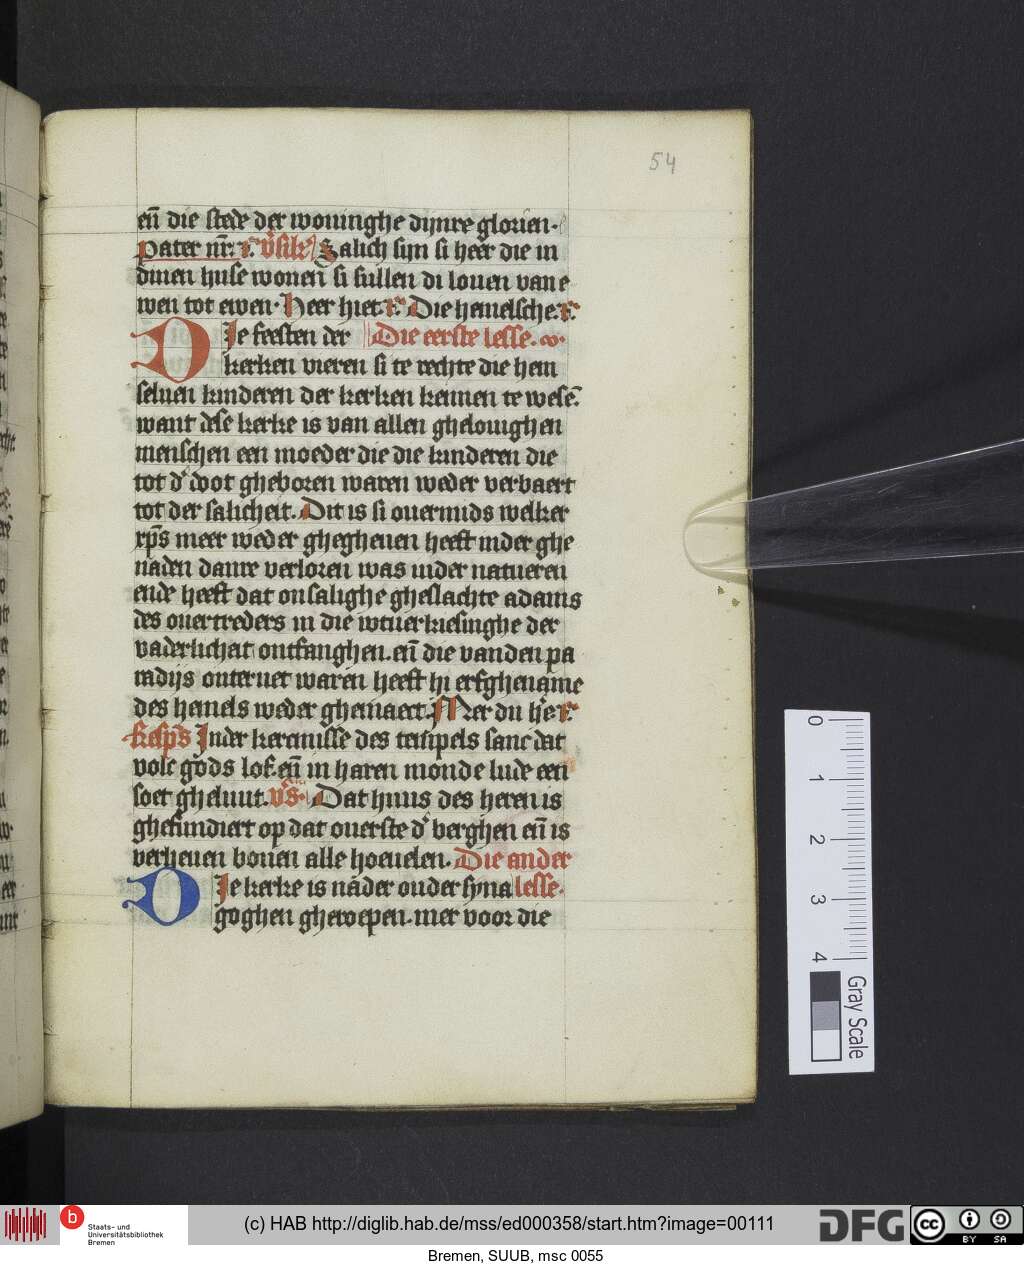 54
en̄ die stede der woninghe dijnre glorien.
Pater nr̄. v̄sik̄ Salich sijn si heer die in
dinen huse wonen si sullen di louen van e
wen tot ewen. Heer hiet. r̄. Die hemelsche. r̄.
Die feesten der Die eerste lesse.
kerken vieren si te rechte die hem
seluen kinderen der kerken kennen te wesē.
want dese kerke is van allen ghelouighen
menschen een moeder die die kinderen die
tot d' doot gheboren waren weder verbaert
tot der salicheit. Dit is si ouermids welker
xp̄s meer weder ghegheuen heeft inder ghe
naden danre verloren was inder natueren
ende heeft dat onsalighe gheslachte adams
des ouertreders in die wtuerkiesinghe der
vaderlichat ontfanghen. en̄ die vanden pa
radijs onteruet waren heeft hi erfghename
des hemels weder ghemaect. Mer du he r̄.
Resp̄s Inder kermisse des tempels sanc dat
volc gods lof. en̄ in haren monde lude een
soet gheluut. v̄s. Dat huus des heren is
ghefundiert op dat ouerste d' berghen en̄ is
verheuen bouen alle hoeuelen. Die ander
Die kerke is nader onder syna lesse.
goghen gheroepen. met voor die
0 1 2 3 4
Gray Scale
b
Staats- und
Universitätsbibliothek
Bremen
(c) HAB http://diglib.hab.de/mss/ed000358/start.htm?image=00111
DFG
cc BY SA
Bremen, SUUB, msc 0055